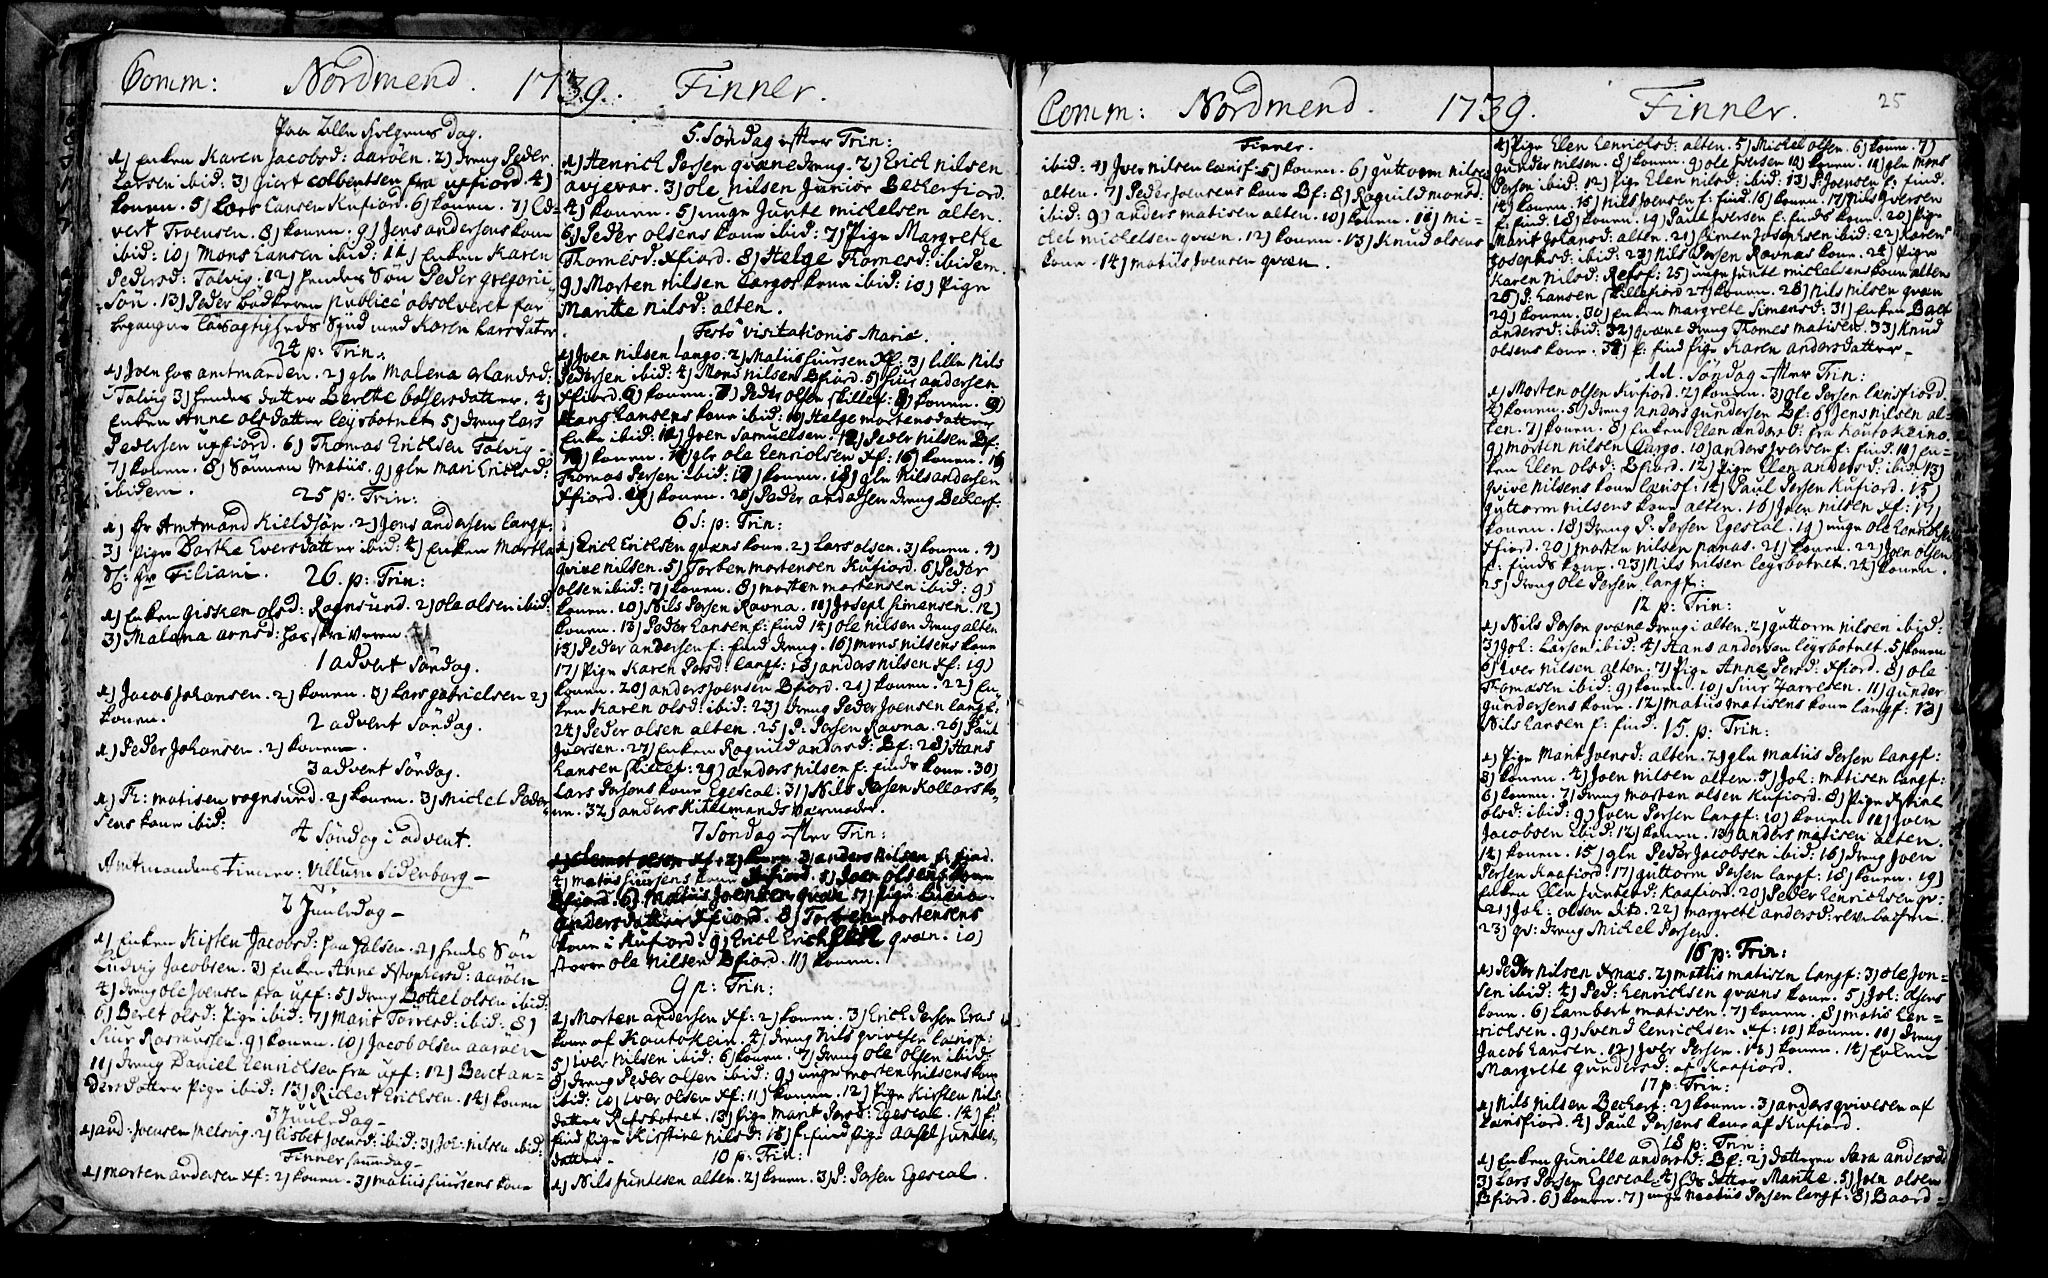 Comm: Nordmend. 1739. Finner.
Paa Alle Helgens Dag.
1) Enken Karen Jacobsd: aaröen. 2) dreng Peder
Larsen ibid: 3) Giert Colbentsen fra upfiord. 4)
konen. 5) Lars Hansen Kufiord. 6) konen. 7) Ed=
vert Troensen. 8) konen. 9) Jens andersens kone
ibid: 10) Mons Hansen ibid: 11) Enken Karen
Pedersd: Talvig. 12) hendes Sön Peder gregeri=
sön. 13) Peder bödkeren publice absolveret for
begangne Løsagtigheds Synd med Karen Larsdatter
24 p: Trin:
1) Joen hos amtmanden. 2) gln Malena Erlandsd:
Talvig 3) hendes datter Berethe bötersdatter. 4)
Enken Anne olsdatter leysbotnet 5) dreng Lars
Pedersen upfiord. 6) Thomas Erichsen Talvig.
7) konen. 8) Sönnen Matiis. 9) gln Mari Erichsd:
ibidem.
25 p: Trin:
1) Hr Amtmand Kieldsön. 2) Jens andersen langf:
3) pige Barthe Eversdatter ibid: 4) Enken Martha
Sl: Hr Filiani.
26. p: Trin:
1) Enken Gisken olsd: Rognsund. 2) ole olsen ibid:
3) Malena arnsd: hos skriveren.
1 advent Söndag.
1) Jacob Johansen. 2) konen. 3) Lars gabrielsen 2)
konen.
2 advent Söndag.
1) Peder Johansen. 2) konen.
3 advent Söndag.
1) Fr: matisen rognsund. 2) konen. 3) Michel Peder=
sens kone ibid:
4 Söndag i advent.
Amtmandens tienner: Villum Sidenborg
2 Juuledag
1) Enken Kisten Jacobsd: paa halsen. 2) hendes Sön
Ludvig Jacobsen. 3) Enken Anne Xstophersd: aaröen
4) dreng ole Joensen fra upf: 5) dreng Bottel olsen ibid:
6) Beret olsd: pige ibid: 7) Marit Törresd: ibid: 8)
Siur Rasmussen. 9) konen. 10) Jacob olsen aaröen
11) dreng Daniel Henrichsen fra upf: 12) Beret an=
dersdatter pige ibid: 13) Richert Erichsen. 14) konen
3 Juuledag
1) and: Joensen melsvig. 2) lisbet Joensd: ibid: 3) Joh: Nilsen ibid:
Finner samme dag
1) morten andersen xf: 2) konen. 3) matiis Siursens kone
5. Söndag efter Trin:
1) Henrich Persen qvæne dreng. 2) Erich Nilsen
avjevar. 3) ole Nilsen Junior Beckerfiord.
4) konen. 5) unge Junte michelsen alten.
6) Peder olsens kone ibid: 7) Pige Margrethe
Thomesd: Xfiord. 8) Helge Thomesd: ibidem.
9) Morten Nilsen Cargos kone ibid: 10) Pige
Marithe Nilsd: alten.
Festo visitationis Mariæ.
1) Joen Nilsen Lango. 2) Matiis Siursen xf: 3) lille Nils
Pedersen ibid: 4) Mons Nilsen Bfiord. 5) Siur andersen
Xfiord. 6) konen. 7) Peder olsen skillef: 8) konen. 9)
Hans Hansens kone ibid: 10) Helge mortensdatter
Enke ibid: 11) Joen Samuelsen. 12) Peder Nilsen Bf:
13) konen. 14) gln ole Henrichsen xf: 15) konen. 16)
Thomas Persen ibid: 17) konen. 18) gln Nils andersen
Xfiord. 19) konen. 20) Peder andersen dreng Beckerf:
6 S: p: Trin:
1) Erich Erichsen qvæns kone. 2) Lars olsen. 3) konen. 4)
qvive Nilsen. 5) Torben mortensen Kufiord. 6) Peder
olsen ibid: 7) konen. 8) morten mortensen ibid: 9)
konen. 10) Nils Persen Ravna. 11) Joseph Simensen. 12)
konen. 13) Peder Hansen f: find 14) ole Nilsen dreng alten
15) Peder andersen f: find dreng. 16) mons nilsens kone
17) Pige Karen Persd: langf: 18) anders nilsen xf: 19)
konen. 20) anders Joensen Bfiord. 21) konen. 22) En=
ken Karen olsd: ibid: 23) dreng Peder Joensen langf:
24) Peder olsen alten. 25) P: Persen Ravna. 26) Paul
Juersen. 27) Enken Ragnild andersd: Bf: 28) Hans
Hansen skillef: 29) anders nilsen f: finds kone. 30)
Lars Persens kone Egescal: 31) Nils Persen Kollars ko=
ne. 32) anders Kitilmands værmoder.
7 Söndag efter Trin:
1) Clemet olsen xf: 2) konen 3) anders nilsen f: find.
4) matiis Siursens kone Xfiord. 5) Joen olsens kone
Bfiord. 6) Matiis Joensen qvæn 7) Pige Lucia
andersdatter Xfiord. 8) Torben mortensens
kone i Kufiord. 9) Erich Erichsen qvæn. 10)
store ole Nilsen Bfiord. 11) konen.
9 p: Trin:
1) Morten andersen xf: 2) konen. 3) Erich Persen Eras
kone af Koutokein. 4) dreng Nils qvivesen lærisf:
5) Iver Nilsen ibid: 6) konen. 7) dreng ole olsen ibid:
8) dreng Peder olsen ibid: 9) unge morten nilsens kone
ibid: 10) Iver olsen xf: 11) konen. 12) Pige Kirsten Nils
datter Refsbotnet. 13) Pige marit Persd: Egescal. 14) f:
find pige Kirstine nilsd: 15) f: find pige Aasel Juntes=
datter
10 p: Trin:
1) Nils Juntesen alten. 2) konen. 3) P: Persen Egescal.
Comm: Nordmend. 1739. Finner. 25
Finner.
ibid: 4) Iver nilsen lærisf: 5) konen. 6) guttorm nilsen
alten. 7) Peder Joensens kone Bf: 8) Ragnild monsd:
ibid: 9) anders matisen alten. 10) konen. 11) Mi=
chel michelsen qvæn. 12) konen. 13) Knud olsens
kone. 14) matiis Joensen qvæn.
1) Pige Elen Henrichsd: alten. 5) Michel olsen. 6) konen. 7)
gunder nilsen. 8) konen. 9) ole Iversen 10) konen. 11) gln mons
Persen ibid: 12) Pige Elen nilsd: ibid: 13) P: Joensen f: find.
14) konen. 15) Nils Joensen f: find. 16) konen. 17) Nils Iversen
f: find. 18) konen. 19) Paul Iversen f: finds kone. 20) Pige
Marit Johansd: alten. 21) Simen Josephsen ibid: 22) Karen
Josephsd: ibid: 23) Nils Persen Ravnas kone. 24) Pige
Karen Nilsd: Refsf: 25) unge Junte michelsens kone alten
26) P: Hansen skillefiord 27) konen. 28) Nils Nilsen qvæn
29) konen. 30) Enken Margrete Simensd: 31) Enken Beret
andersd: ibid: 32) qvæne dreng Thomes matisen. 33) Knud
olsens kone. 34) f: find pige Karen andersdatter
11. Söndag efter Trin:
1) Morten olsen Kufiord. 2) konen. 3) ole Persen lærisfiord
4) konen. 5) dreng anders gundersen Bf: 6) Jens Nilsen al=
ten. 7) konen. 8) Enken Elen andersd: fra Koutokeino
9) morten nilsen Cargo. 10) anders Iversen f: find. 11) En=
ken Elen olsd: Bfiord. 12) Pige Elen andersd: ibid: 13)
qvive Nilsens kone lærisf: 14) Paul Persen Kufiord. 15)
guttorm nilsens kone alten. 16) Joen nilsen xf: 17)
konen. 18) dreng P: Persen Egescal. 19) unge ole Henrichsen
Xfiord. 20) morten nilsen panas. 21) konen. 22) Joen olsen
f: finds kone. 23) Nils nilsen leysbotnet. 24) konen.
25) dreng ole Persen langf:
12 p: Trin:
1) Nils Persen qvæne dreng i alten. 2) guttorm nilsen ibid:
3) Joh: Larsen ibid: 4) Hans andersen leysbotnet. 5) konen
6) Iver nilsen alten. 7) Pige Anne Persd: Xfiord. 8) ole
Thomasen ibid: 9) konen. 10) Siur Zarresen. 11) gunder
gundersens kone. 12) matiis matisens kone langf: 13)
Nils Hansen f: find.
15. p: Trin:
1) Pige Marit Joensd: alten. 2) gln matiis Persen langf:
3) konen. 4) Joen nilsen alten. 5) Joh: matisen langf:
6) konen. 7) dreng morten olsen Kufiord. 8) Pige Kirstine
olsd: ibid: 9) Joen Persen langf: 10) konen 11) Joen
Jacobsen ibid: 12) konen. 13) anders matisen alten.
14) konen. 15) gln Peder Jacobsen ibid: 16) dreng Joen
Persen Kaafiord. 17) guttorm Persen langf: 18) konen. 19)
Enken Elen Juntesd: Kaafiord. 20) Peder Henrichsen qv:
21) Joh: olsen dito. 22) margrete andersd: revebachen
23) qv: dreng Michel Persen.
16 p: Trin:
1) Peder nilsen xnæs. 2) mattis matisen langf: 3) ole Jon=
sen ibid: 4) Ped: Henrichsen qvæns kone. 5) Joh: olsens
kone. 6) Lambert matisen. 7) konen. 8) matis Hen=
richsen. 9) Svend Henrichsen xf: 10) konen. 11) dreng
Jacob Hansen. 12) Iver Persen. 13) konen. 14) Enken
Margrete gundersd: af Kaafiord.
17 p: Trin:
1) Nils Nilsen Beckerf: 2) konen. 3) anders qvivesen af
lærisfiord. 4) Paul Persens kone af Kufiord.
18 p: Trin:
1) Enken Gunille andersd: Bf: 2) datteren Sara andersd:
3) Lars Persen Egescal. 4) Eds datter Marithe. 5) Joen olsen
Bfiord. 6) konen. 7) unge matiis Persen langf: 8) Baard=